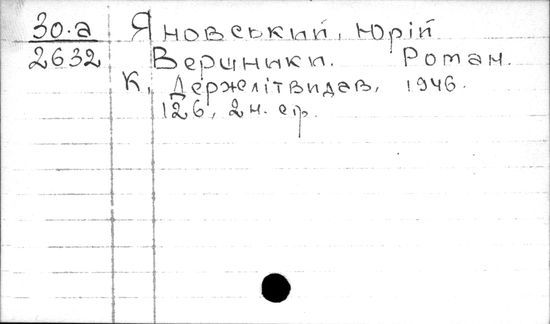 30.а Яновський, Юрій
2632 Вершники. Роман.
К, Держлітвидав, 1946.
126, 2 н. ср.